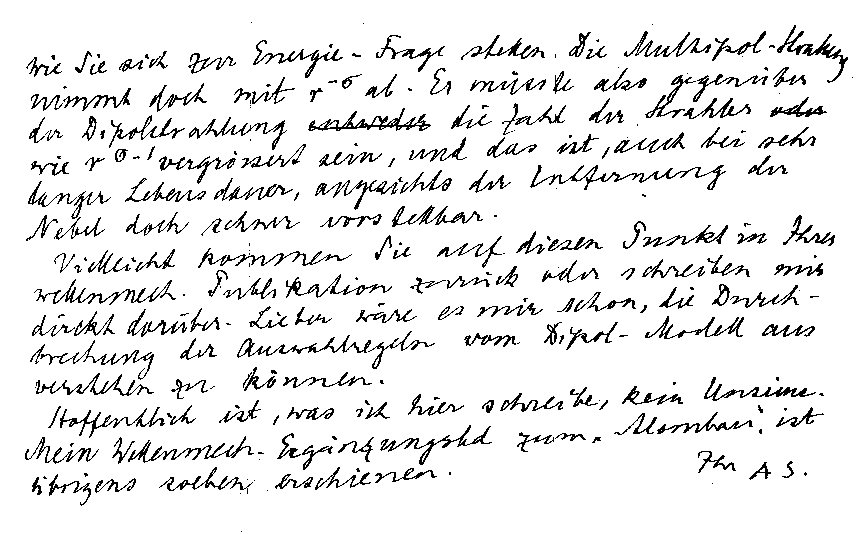 wie Sie sich zur Energie-Frage stellen. Die Multipol-Strahlung
nimmt doch mit r⁻σ ab. Es müsste also gegenüber
der Dipolstrahlung entweder die Zahl der Strahler oder
wie r σ-1 vergrössert sein, und das ist, auch bei sehr
langer Lebensdauer, angesichts der Entfernung der
Nebel doch schwer vorstellbar.
Vielleicht kommen Sie auf diesen Punkt in Ihrer
wellenmech. Publikation zurück oder schreiben mir
direkt darüber. Lieber wäre es mir schon, die Durch-
brechung der Auswahlregeln vom Dipol-Modell aus
verstehen zu können.
Hoffentlich ist, was ich hier schreibe, kein Unsinn.
Mein Wellenmech. Ergänzungsbd zum „Atombau“ ist
übrigens soeben erschienen.
Ihr A S.